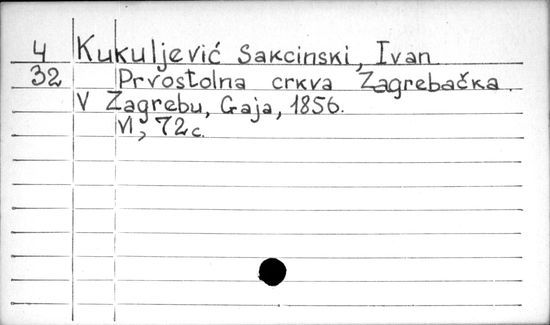 4 Kukuljević Sakcinski, Ivan
32 Prvostolna crkva Zagrebačka.
V Zagrebu, Gaja, 1856.
VI; 72 c.